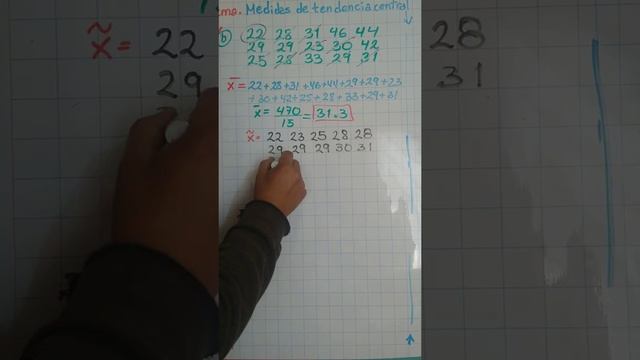 ma. Medidas de tendencia central
b) 22 28 31 46 44
29 29 23 30 42
25 28 33 29 31
x̄ = 22+28+31+46+44+29+29+23
+30+42+25+28+33+29+31
x̄ = 470/15 = 31.3
x̃ = 22 23 25 28 28
29 29 29 30 31
x̃ = 22
29
28
31